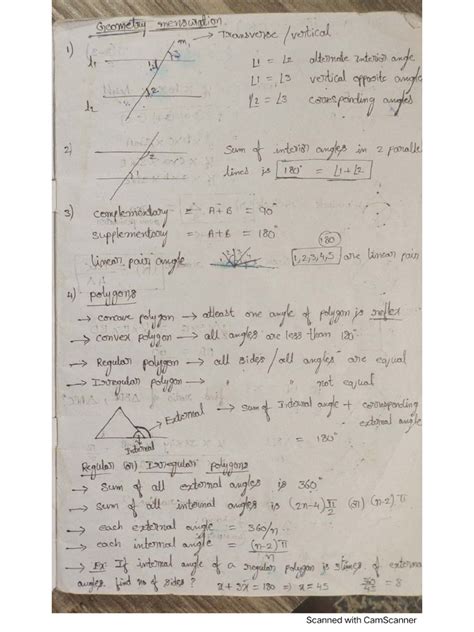 Geometry mensuration
1) m → Transverse / vertical
l1 1 3 ∠1 = ∠2 alternate interior angle
∠1 = ∠3 vertical opposite angle
l2 2 ∠2 = ∠3 corresponding angles
2) 1 2 Sum of interior angles in 2 paralle
lines is 180° = ∠1+∠2
3) Complementary = A+B = 90°
Supplementary = A+B = 180°
180
linear pair angle 1,2,3,4,5 are linear pair
4) Polygons
→ concave polygon → atleast one angle of polygon is reflex
→ convex polygon → all angles are less than 180°
→ Regular polygon → all sides / all angles are equal
→ Irregular polygon → " " not equal
External → sum of Internal angle + corresponding
external angle
Internal = 180°
Regular (or) Irregular polygons
→ Sum of all external angles is 360°
→ Sum of all internal angles is (2n-4) π/2 (or) (n-2) π
→ each external angle = 360/n
→ each internal angle = (n-2)π/n
→ Ex: If internal angle of a regular polygon is 3times of external
angles. find no of sides? x+3x=180 ⇒ x=45 360/45 = 8
Scanned with CamScanner